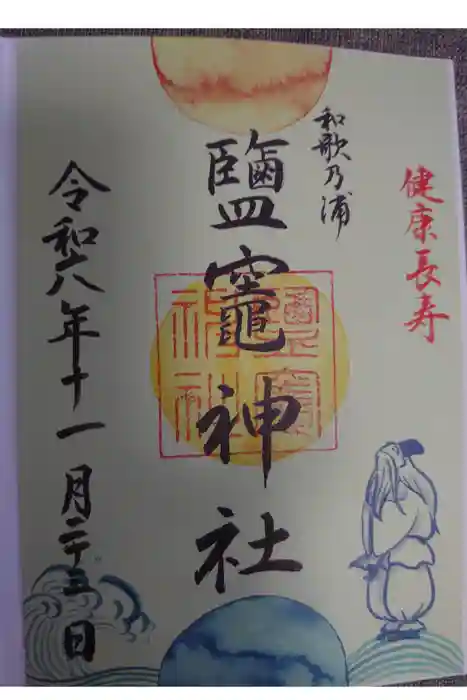 健康長寿
和歌乃浦
鹽竈神社
令和六年十一月二十三日